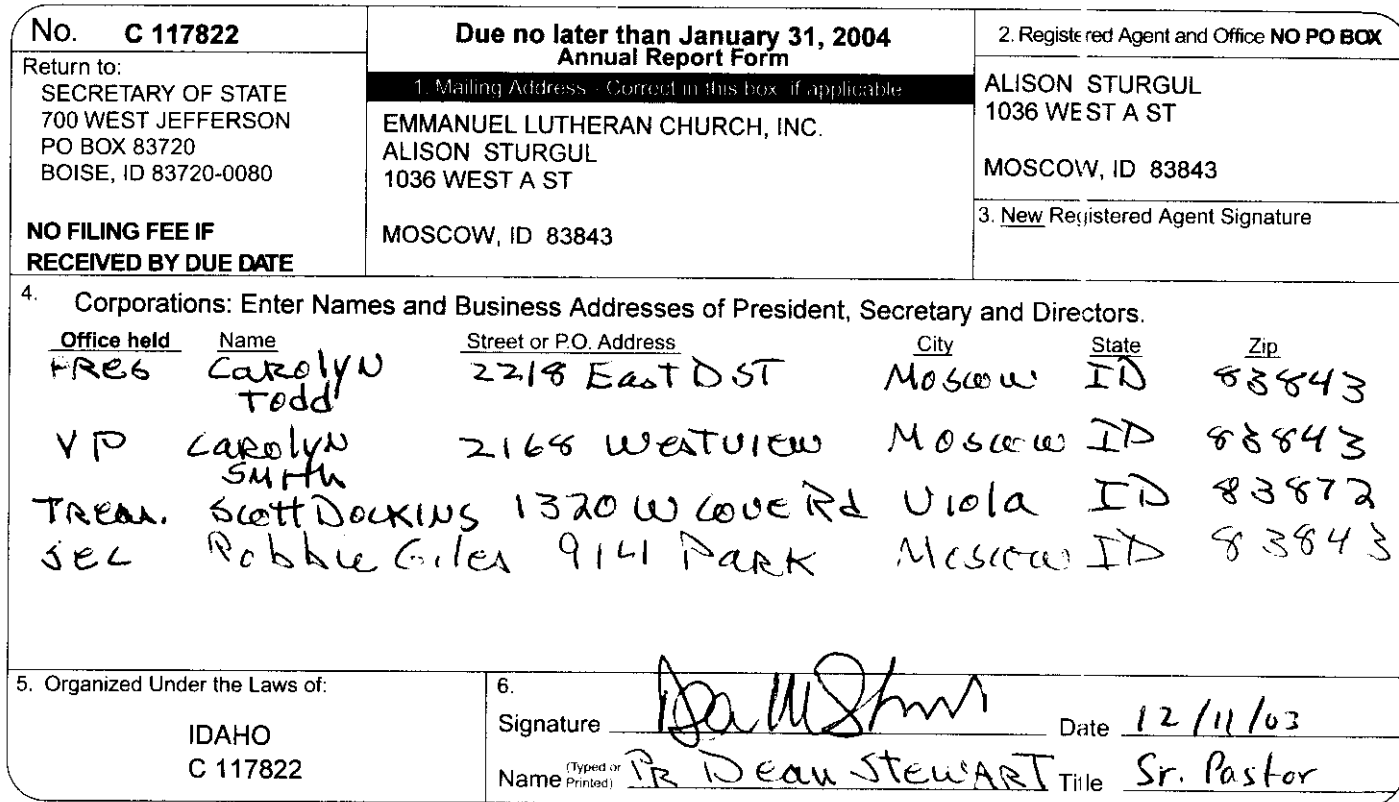 No. C 117822
Return to:
SECRETARY OF STATE
700 WEST JEFFERSON
PO BOX 83720
BOISE, ID 83720-0080
NO FILING FEE IF
RECEIVED BY DUE DATE
Due no later than January 31, 2004
Annual Report Form
1. Mailing Address - Correct in this box if applicable
EMMANUEL LUTHERAN CHURCH, INC.
ALISON STURGUL
1036 WEST A ST
MOSCOW, ID 83843
2. Registered Agent and Office NO PO BOX
ALISON STURGUL
1036 WEST A ST
MOSCOW, ID 83843
3. New Registered Agent Signature
4. Corporations: Enter Names and Business Addresses of President, Secretary and Directors.
Office held Name Street or P.O. Address City State Zip
PRES Carolyn Todd 2218 East D ST Moscow ID 83843
VP Carolyn Smith 2168 Westview Moscow ID 83843
Treas. Scott Dockins 1320 W Cove Rd Viola ID 83872
Sec Robbie Giles Park Moscow ID 83843
5. Organized Under the Laws of:
IDAHO
C 117822
6.
Signature Date 12/11/03
Name (Typed or Printed) Pr Dean Stewart Title Sr. Pastor